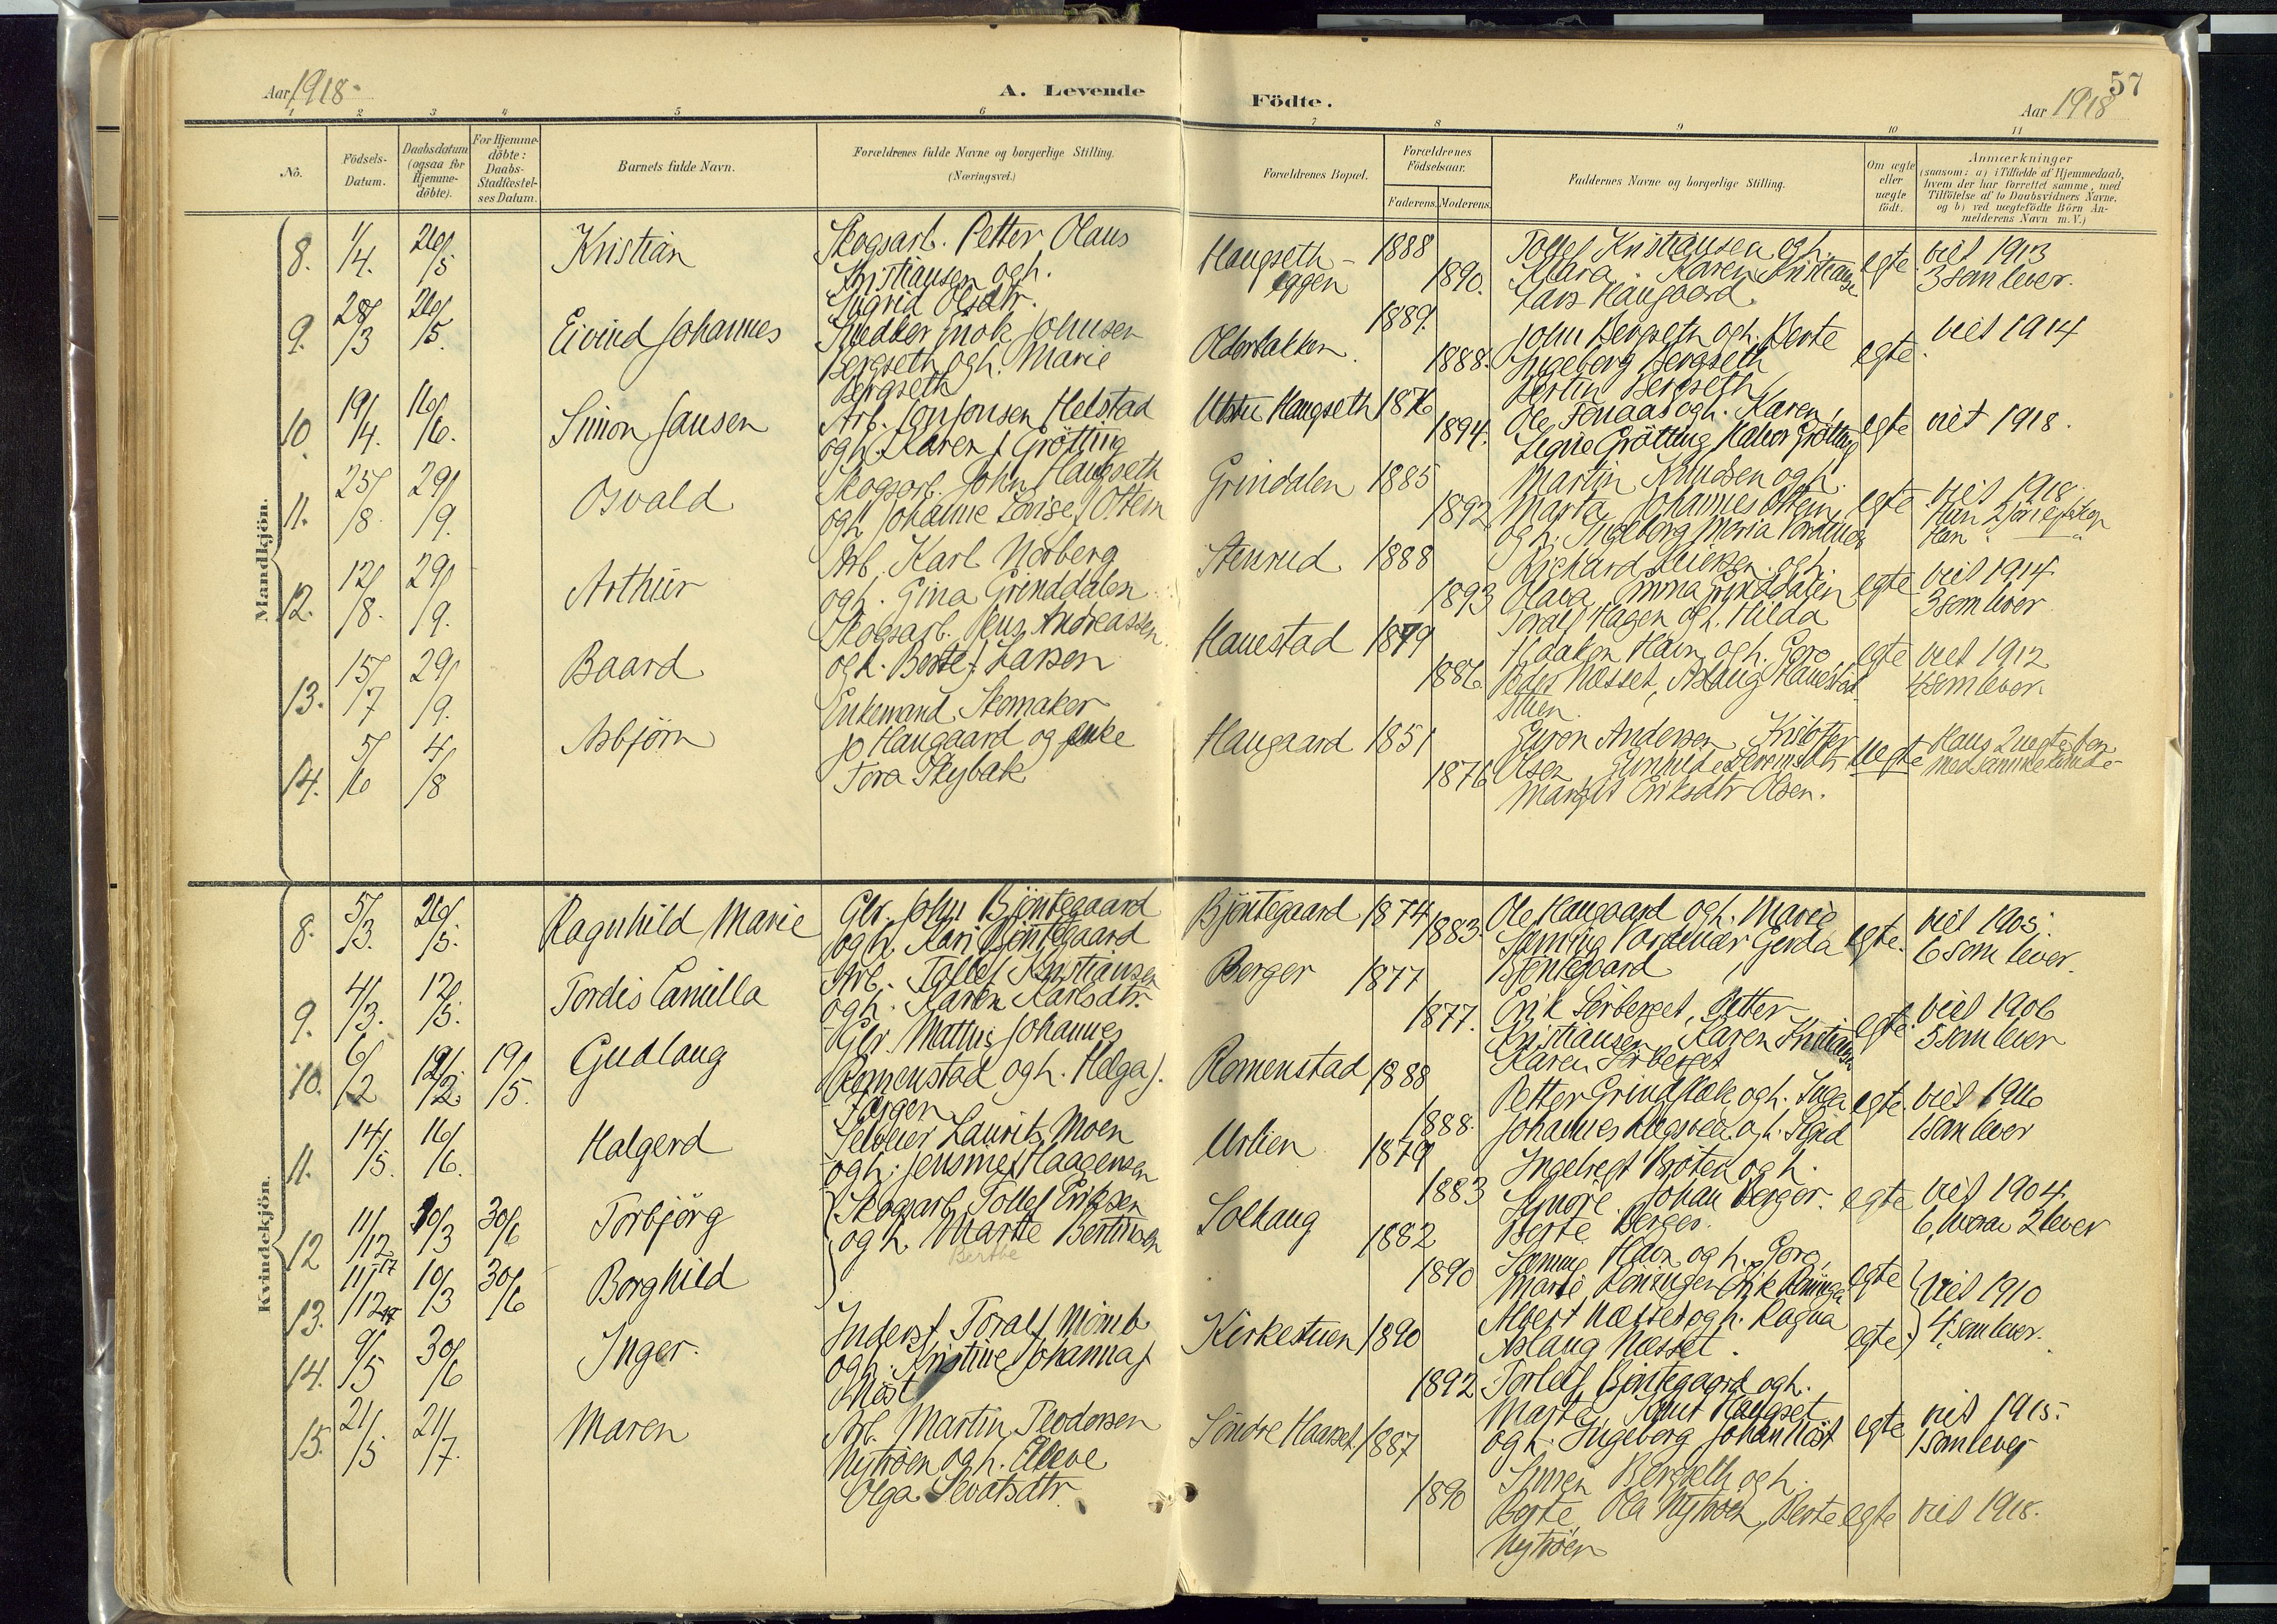 Aar 1918.
A. Levende
Födte.
57
Aar 1918
1 2 3 4 5 6 7 8 9 10 11
Nö.
Födsels-
Datum.
Daabsdatum
(ogsaa for
Hjemme-
döbte).
For Hjemme-
döbte:
Daabs-
Stadfæstel-
ses Datum.
Barnets fulde Navn.
Forældrenes fulde Navne og borgerlige Stilling.
(Næringsvei.)
Forældrenes Bopæl.
Forældrenes
Födselsaar.
Faderens. Moderens.
Faddernes Navne og borgerlige Stilling.
Om ægte
eller
uægte
födt.
Anmærkninger
(saasom: a) i Tilfælde af Hjemmedaab,
hvem der har forrettet samme, med
Tilföielse af to Daabsvidners Navne,
og b) ved uægtefödte Börn An-
melderens Navn m. V.)
Mandkjön.
8. 1/4. 26/5 Kristian
Skogsarb. Petter Olaus
Kristiansen og h.
Ingrid Olsdtr.
Haugseth-
eggen
1888
1890.
Tollef Kristiansen og h.
Klara. Karen Kristianse
Lars Haugaard
egte.
viet 1913
3 som lever.
9. 28/3 26/5. Eivind Johannes
Snedker Enok Johnsen
Bergseth og h. Marie
Bergseth
Olderbakken.
1889.
1888.
John Bergseth og h. Berte
Ingeborg Bergseth
Bertin Bergseth
egte.
viet 1914
10. 19/4. 16/6. Simon Jansen
Arb. Jon Jonsen Helstad
og h. Karen J. Grötting
Utstu Haugseth
1876
1894.
Ole Fonaas og h. Karen,
Signe Grötting Halvor Grötting
egte
viet 1918.
11. 25/8. 29/9. Osvald
Skogsarb. John Haugseth
og h. Johanne Lovise J. Ottem
Grindalen
1885
1892
Martin Knudsen og h.
Marta Johannes Ottem
og h. Ingeborg Maria Nordenes
egte
viet 1918
12. 12/8. 29/9. Arthur
Arb. Karl Norberg
og h. Gina Grinddalen
Stenrud
1888
1893
Richard Eriksen og h.
Olava Emma Grinddalen
Toralf Hagen og h. Hilda
egte
viet 1914.
3 som lever
13. 15/7 29/9. Baard
Skogsarb. Jens Andreassen
og h. Berte J. Larsen
Hanestad
1879
1886.
Haakon Ham og h. Goro
Peder Næsset, Aslaug Hanestad
Stuen.
egte
viet 1912
4 som lever.
14. 5/6 4/8 Asbjörn
Enkemand Skomaker
Jo Haugaard og enke
Tora Skybak
Haugaard
1851
1876
Guron Andersen Kristofer
Olsen Gunhild Lorentsdtr
Margit Eriksdtr Olsen.
uegte
Hans 2 uegte barn
med samme kvinde
Kvindekjön.
8. 5/3. 26/5. Ragnhild Marie
Gbr. John Bjöntegaard
og h. Kari Bjöntegaard
Bjöntegaard
1874
1883.
Ole Haugaard og h. Marie
Samring Nordenær Gerda
Bjöntegaard
egte.
viet 1903.
6 som lever.
9. 4/3. 12/5. Tordis Camilla
Arb. Tollef Kristiansen
og h. Karen Karlsdtr.
Berger
1877
1877.
Erik Sörberget, Petter
Kristiansen, Karen Kristianse
Karen Sörberget
egte.
viet 1906
5 som lever
10. 6/2 12/2. 19/5. Gudlaug
Gbr. Mattis Johannes
Romenstad og h. Helga J.
Jörgen
Romenstad
1888
1888.
Petter Grindflek og h. Inga
Johannes Lugsveen og h. Sigrid
egte.
viet 1916
1 som lever
11. 14/5. 16/6. Halgerd
Selveier Laurits Moen
og h. Jensine J. Haagensen
Urlien
1879
1883
Ingebregt Bröten og h.
Synöre. Johan Berger.
Berte Berger.
egte
viet 1904.
6, hvorav 2 lever
12 11/12 17 10/3 30/6 Torbjörg
Skogsarb. Tollef Eriksen
og h. Marte Bertinsen
Berthe
Solhaug
1882
1890
Samme Haon og h. Goro
Marie Löningen Erik Löninge
egte
viet 1910
4 som lever.
13. 11/12 17 10/3 30/6 Borghild
Albert Næsset og h. Ragna
Aslaug Næsset.
egte.
14. 9/5 30/6 Inger.
Inderst Toralf Momb
og h. Kristine Johanna J.
Möst
Kirkestuen
1890
1892
Torleif Bjöntegaard og h.
Marta, Knut Haugset
og h. Ingeborg Johan Möst
egte
viet 1915.
1 som lever
15. 21/5 21/7. Maren
Arb. Martin Teodorsen
Nytröen og h. Elleve
Olga Sevatsdtr.
Söndre Haarset
1887
1890
Simen Bergseth og h.
Berte, Ola Nytröen, Berte
Nytröen
egte
viet 1918.